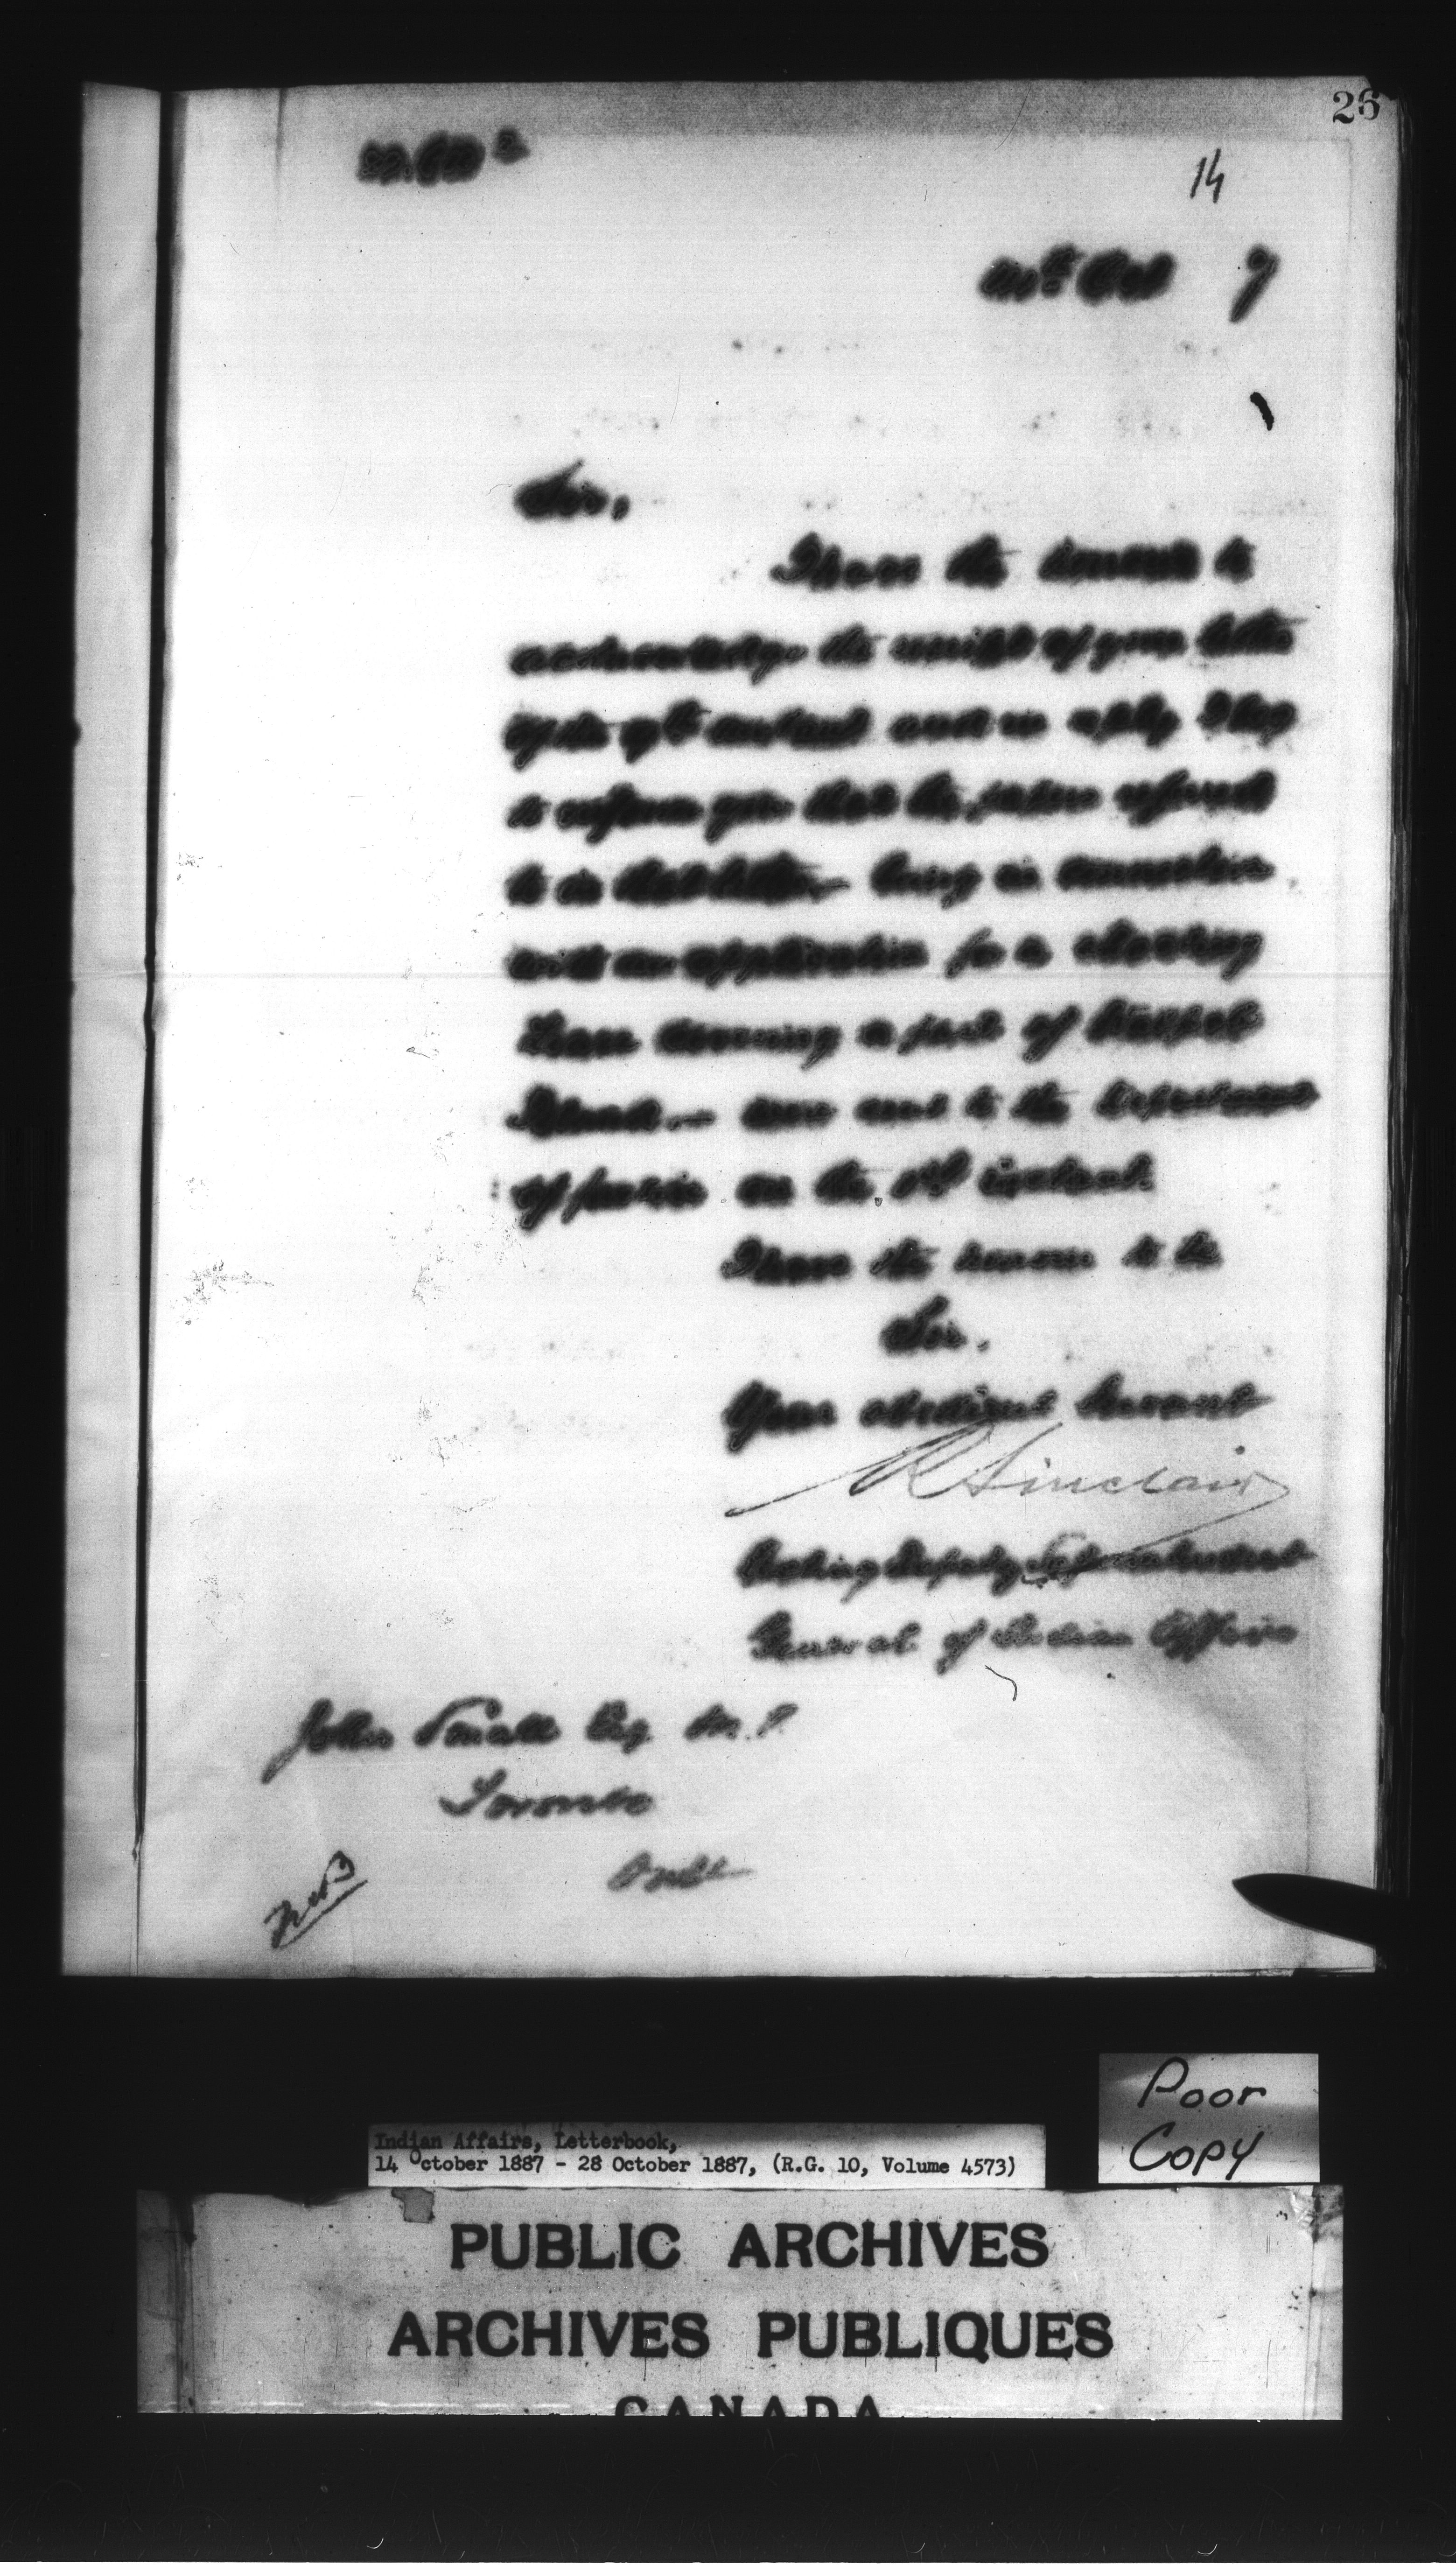 26
14
Oct 7
Sir,
I have the honour to
acknowledge the receipt of your letter
of the instant and in reply I beg
to inform you that the papers referred
to in that letter,— being in connection
with an application for a shooting
Lease covering a part of Walpole
Island.— were sent to the Department
of Justice on the instant.
I have the honour to be
Sir.
Your obedient Servant
R Sinclair
Acting Deputy Superintendent
General of Indian Affairs
John Small Esq. M.P.
Toronto
Ont
Poor
Copy
Indian Affairs, Letterbook,
14 October 1887 - 28 October 1887, (R.G. 10, Volume 4573)
PUBLIC ARCHIVES
ARCHIVES PUBLIQUES
CANADA